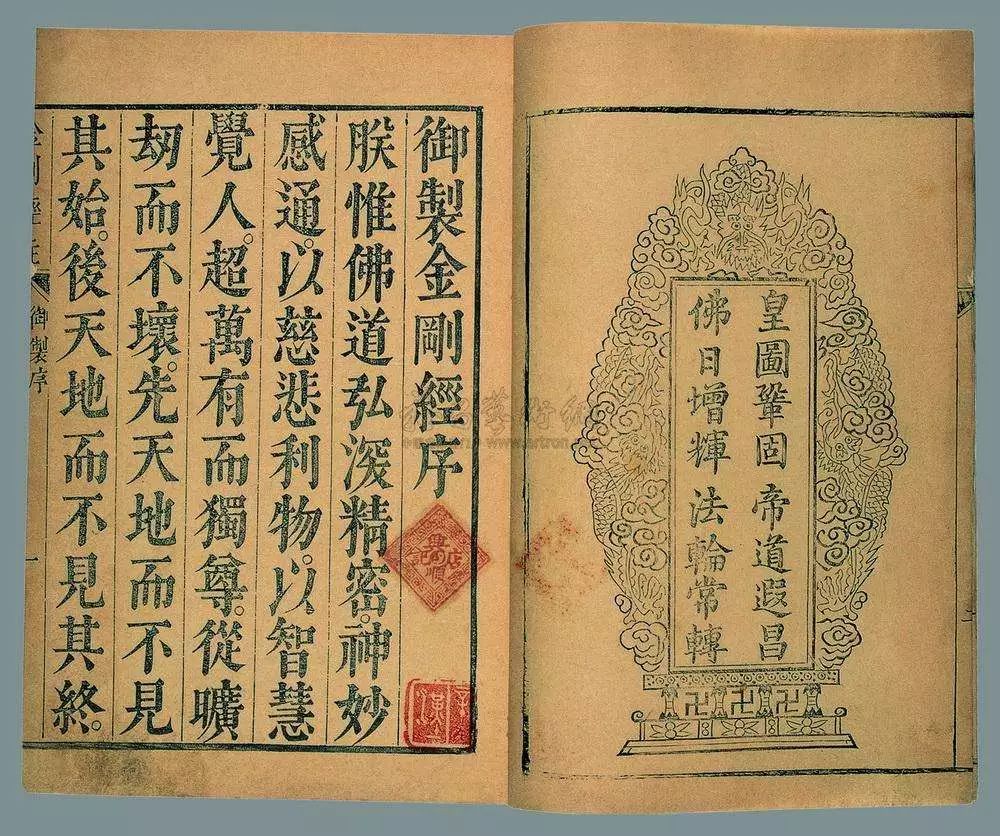 皇圖鞏固 帝道遐昌
佛日增輝 法輪常轉
御製金剛經序
朕惟佛道弘深精密。神妙
感通。以慈悲利物。以智慧
覺人。超萬有而獨尊。從曠
刼而不壞。先天地而不見
其始。後天地而不見其終。
御製序 一